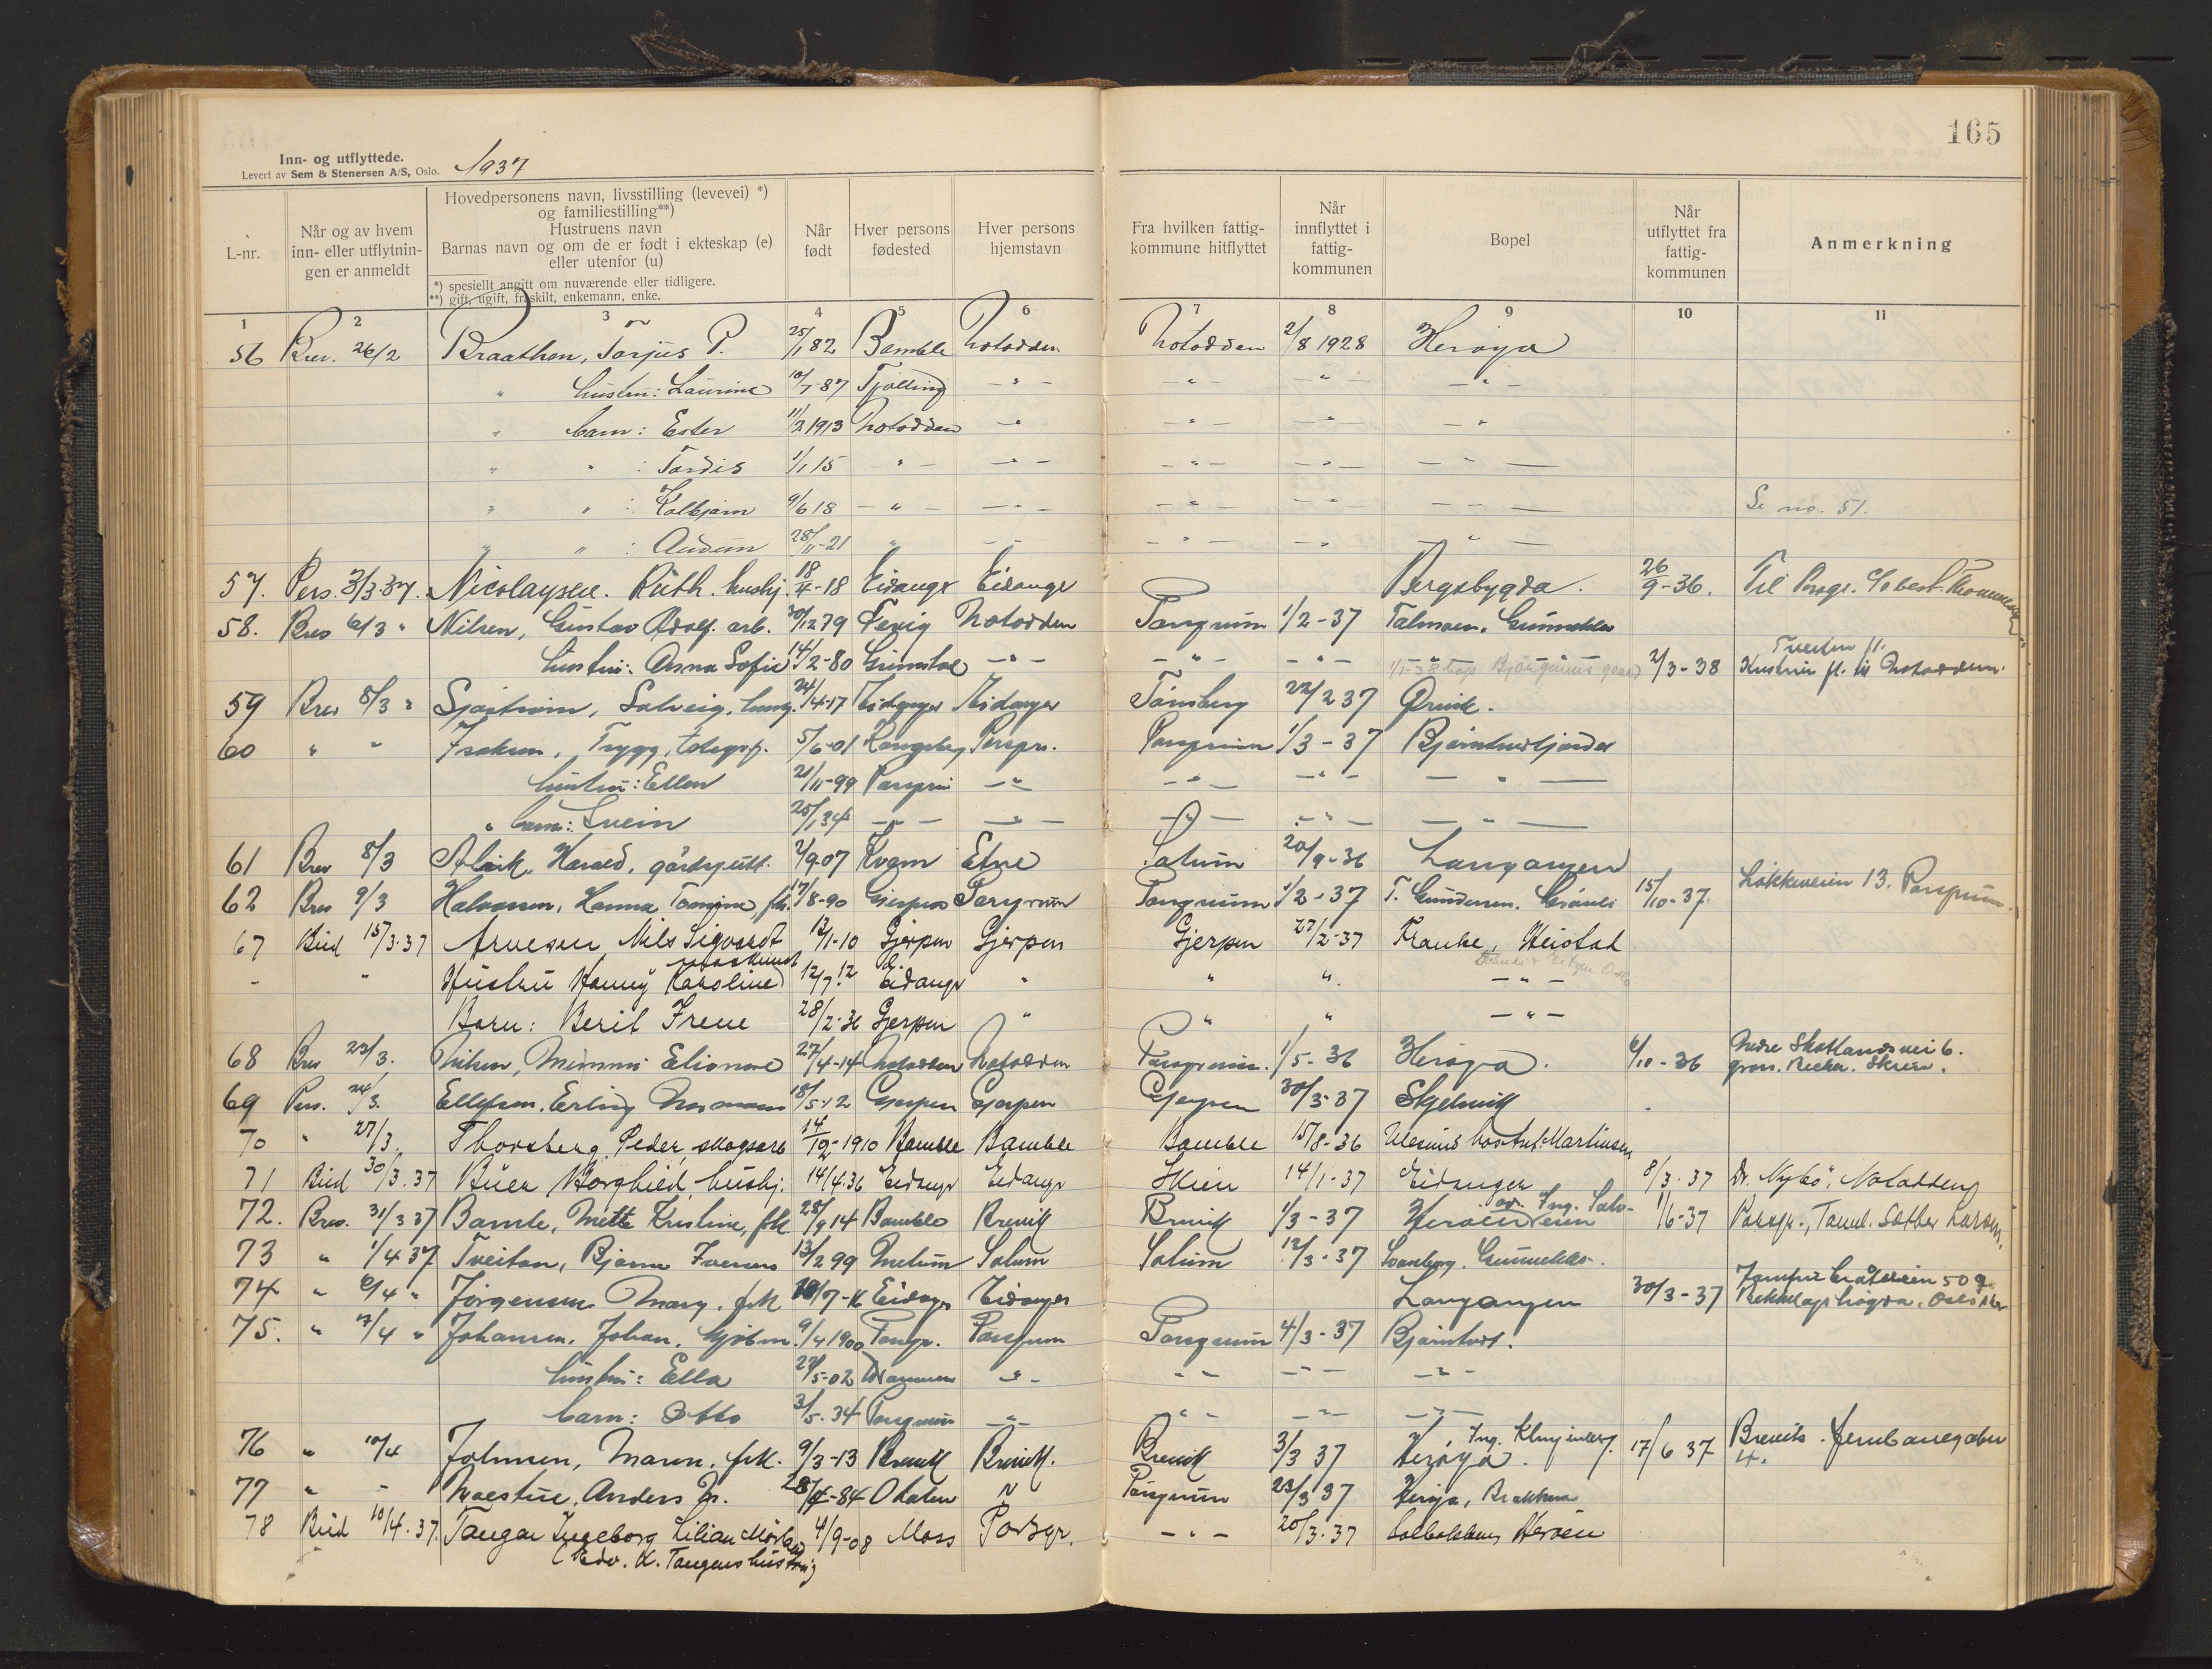 165
Inn- og utflyttede.
Levert av Sem & Stenersen A/S, Oslo. 1937
L-nr.
Når og av hvem inn- eller utflytnin-gen er anmeldt
Hovedpersonens navn, livsstilling (levevei) *)
og familiestilling**)
Hustruens navn
Barnas navn og om de er født i ekteskap (e)
eller utenfor (u)
*) spesiellt angitt om nuværende eller tidligere.
**) gift, ugift, fraskilt, enkemann, enke.
Når født
Hver persons fødested
Hver persons hjemstavn
Fra hvilken fattig-kommune hitflyttet
Når innflyttet i fattig-kommunen
Bopel
Når utflyttet fra fattig-kommunen
Anmerkning
1 2 3 4 5 6 7 8 9 10 11
56 Brev. 26/2 Braathen, Torjus P. 25/1 82 Bamble Notodden Notodden 2/8 1928 Herøya
" hustru: Laurine 10/7-87 Tjølling - " - - " - - " - - " -
" barn: Ester 11/2 1913 Notodden - " - " - - " - "
" " : Tordis 1/1 15 - " - - " - - " - - " - - " -
" " : Kolbjørn 9/6 18 - " - - " - - " - - " - - " - Se no. 51.
" " : Audun 28/11-21 " - - - " - - " - - " -
57. Pers. 2/3.37. Nicolaysen. Ruth. hushj. 18/4-18 Eidangr Eidangr Bergsbygda. 26/9-36. Til Porsgr. c/o best.
58. Brev 6/3 " Nilsen, Gustav Adolf. arb. 30/12 79 Fevig Notodden Porsgrunn 1/2-37 Talmoen, Gunneklev
hustru: Anna Sofie 14/2-80 Grimstad - " - - " - - " - 2/3-38 Tveiten fl. Hustru fl. til Notodden.
59 Brev 8/3 " Sjøstrøm, Solveig, hushj. 24/4-17 Eidanger Eidanger Tønsberg 22/2 37 Ørvik.
60 " " Isaksen, Trygg, telegrf. 5/6-01 Kongsberg Porsgr. Porsgrunn 1/3-37 Bjørntvedtjordet
hustru: Ellen 21/11-99 Porsgrun - " - " - - " - - " -
" barn: Svein 25/1 34 - " - - " - - " - - " - - " -
61 Brev 8/3 Alvik, Harald, gårdsgutt. 2/9.07 Kvam Etne Solum 20/9-36 Langangen
62 Brev 9/3 Halvorsen, Hanna Tomine, frk. 17/8-90 Gjerpen Porsgrunn Porsgrunn 1/2-37 T. Gundersen. Grånli 15/10-37. Løkkeveien 13. Porsgrunn.
67 Bud 15/3.37 Arnesen Nils Sigvardt 12/1-10 Gjerpen Gjerpen Gjerpen 27/2-37 Flauke, Heistad
- " Hustru Hanny Karoline 12/7.12 Eidangr " " " - " -
Barn: Berit Irene 28/2-36 Gjerpen " " " - " -
68 Brev 23/3. Nilsen, Mimmi Elionore 27/4-14 Notodden Notodden Porsgrunn. 1/5-36 Herøya. 6/10-36 Nedre Skotlandsvei 6. Skien.
69 Pers. 24/3. Ellefsen, Erling Normann 18/5-12 Gjerpen Gjerpen Gjerpen 30/3-37 Skjelsvik
70 " 27/3. Thorsberg Peder, skogsarb 14/12-1910 Bamble Bamble Bamble 15/8-36 Martinsen
71 Bud 30/3.37 Buer Borghild, hushj. 14/4.36 Eidangr Eidangr Skien 14/1-37 Eidanger 8/3.37 Dr. Nybø, Notodden
72. Brev. 31/3 37 Bamle, Mette Kristine, frk 28/9 14 Bamble Brevik Brevik 1/3-37 Herøen 1/6-37 Porsgr., Tannl. Sother Larsen.
73 " 1/4 37 Tveitan, Bjarne 13/2 99 Melum Solum Solum 12/3-37 Gunneklev.
74 " 6/4 " Jørgensen Mary. frk 10/7-16 Eidangr Eidanger Langangen 30/3-37 Jomfrubråtveien 50 Bekkelagshøgda, Oslo
75. " 7/4 " Johansen, Johan, sjøm. 9/4 1900 Porsgr. Porsgrunn Porsgrunn 4/3-37 Bjørntvedt.
hustru: Ella 27/5-02 Drammen - " - - " - - " - - " -
barn: Otto 3/5.34 Porsgrunn - " - - " - - " - - " -
76 " 10/4 Johnsen, Maren, frk. 9/3-13 Brevik Brevik. Brevik 3/3 37 Herøya. Ing. 17/6 37 Breviks jernbanegaten 4.
77 " - Moestue, Anders Jr. 28/4-84 " Porsgrunn 23/3 37 Herøya,
78 Bud 10/4.37. Tangen Ingeborg Lilian 4/9-08 Moss Porsgr. - " - 20/3.37 Solbakken, Herøen
(Edv. K. Tangens hustru)